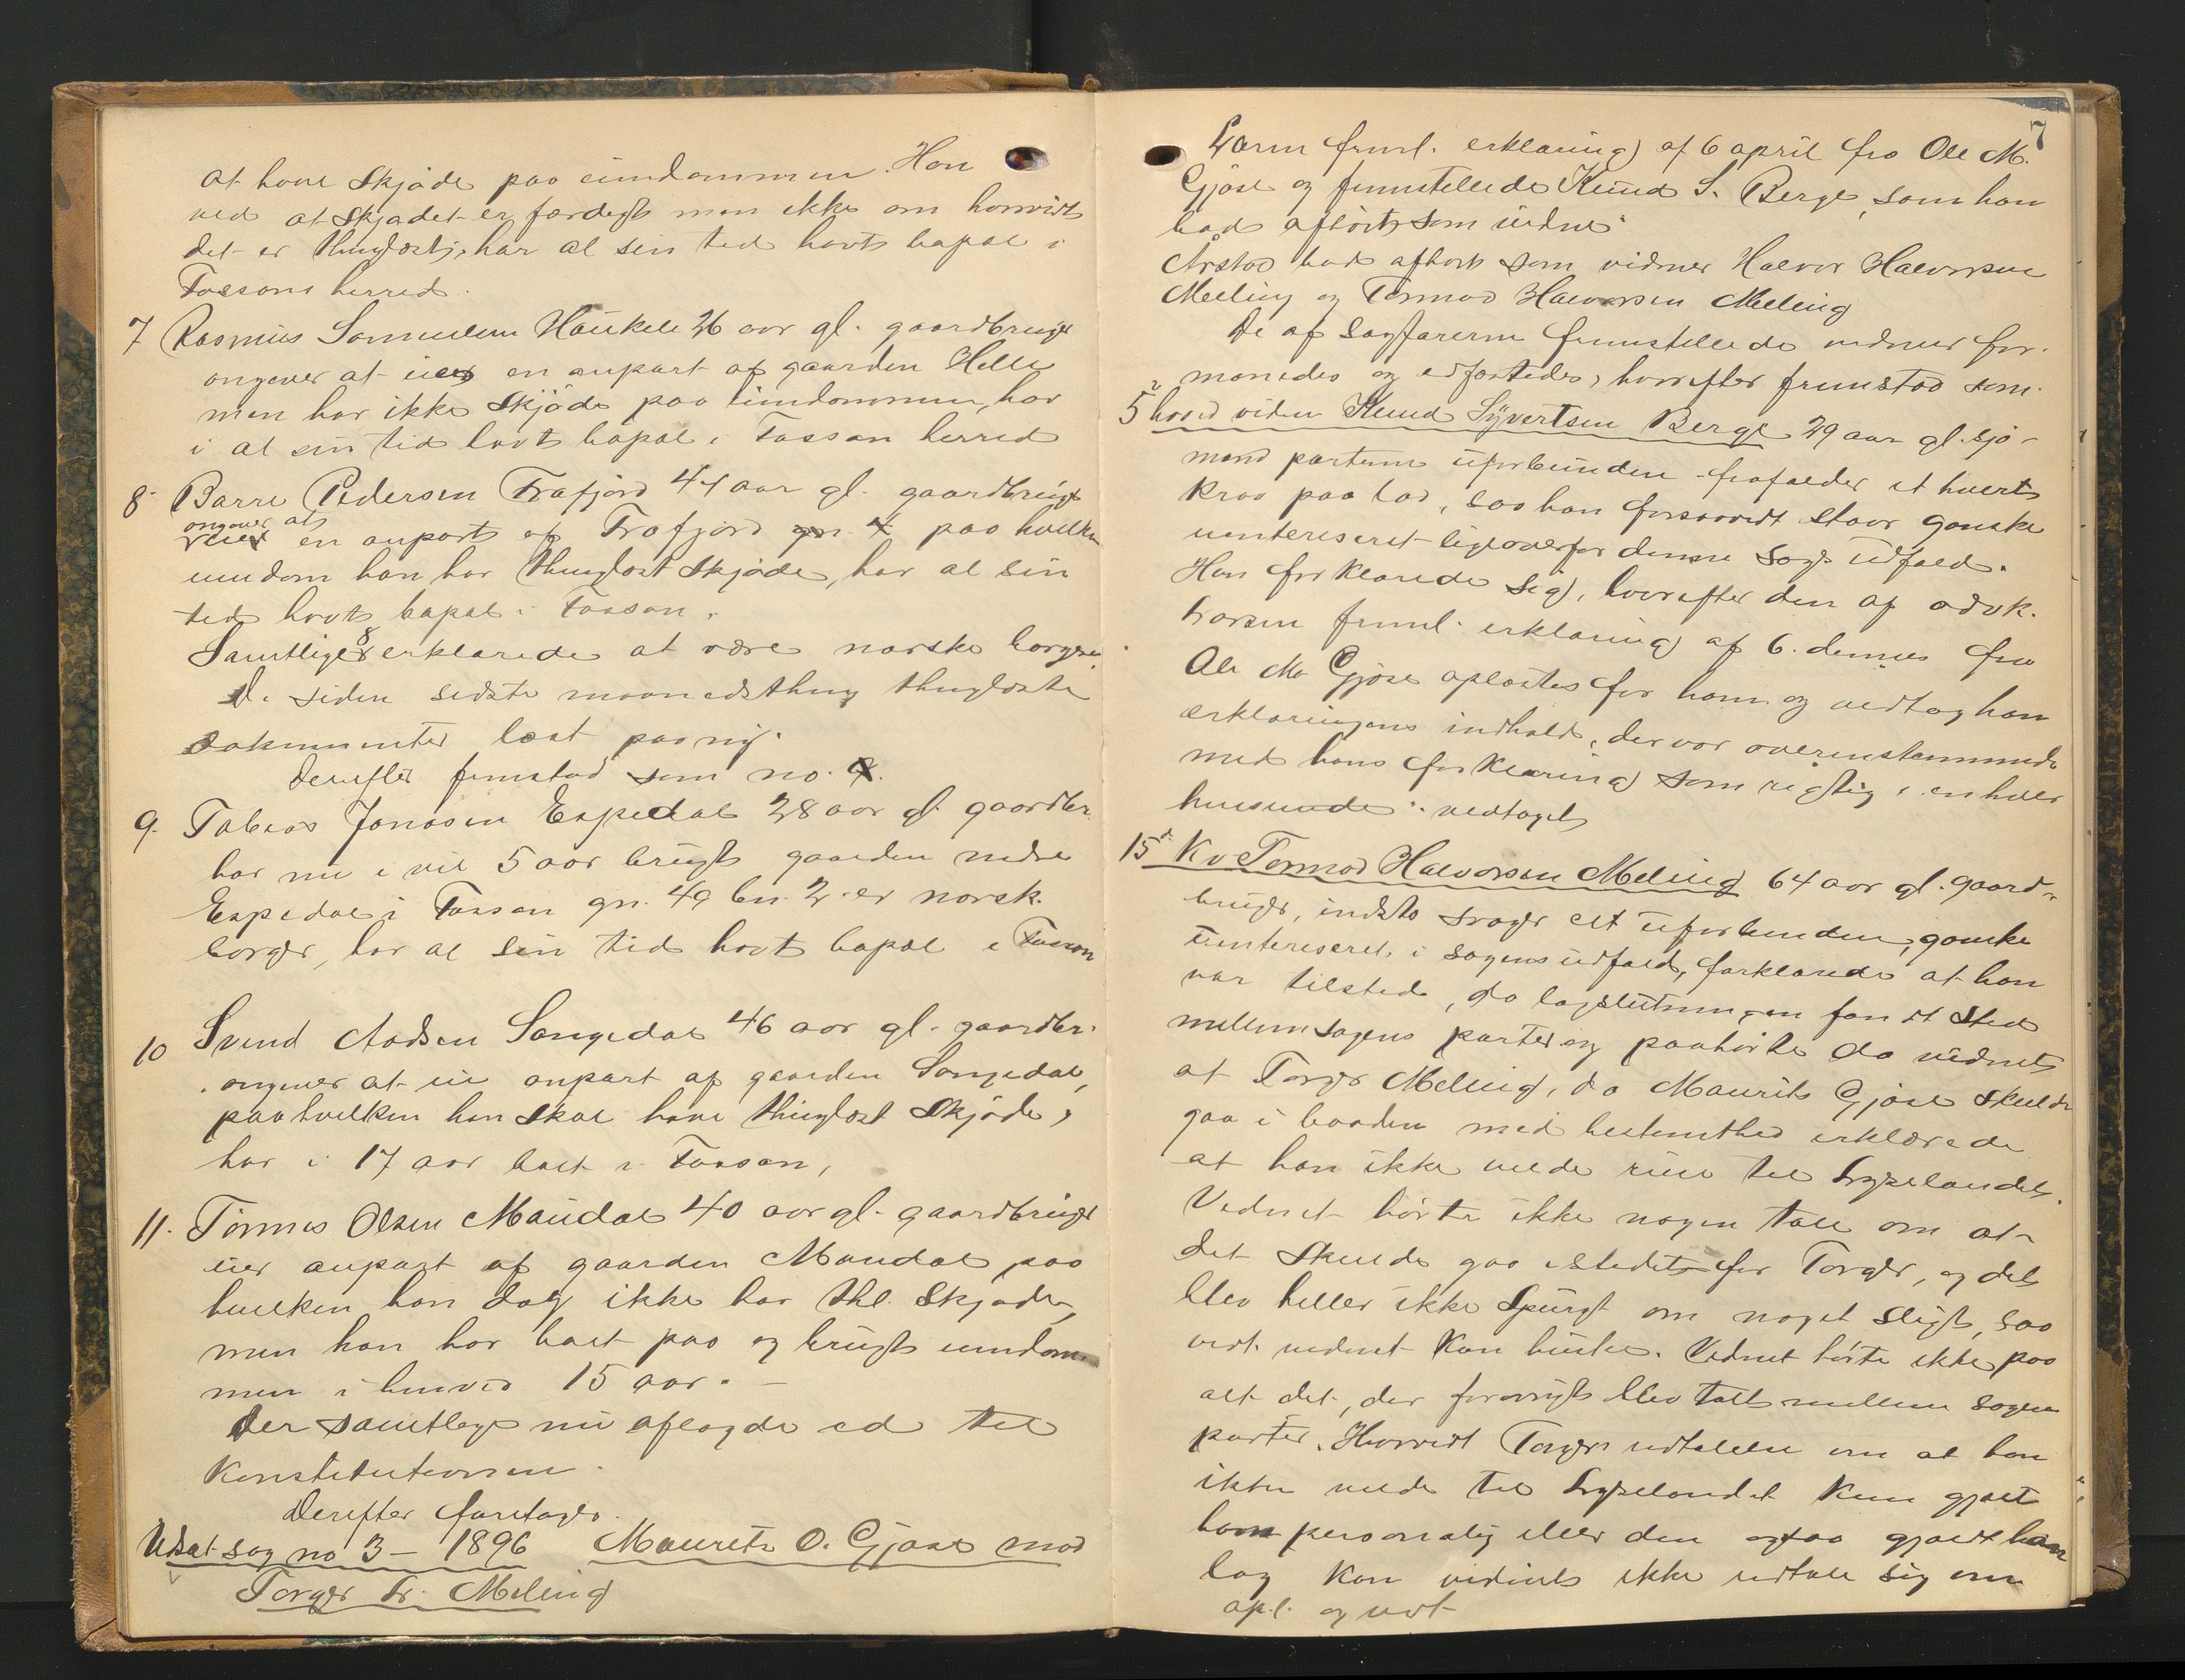 at have Skjøde paa eiendommen. Han
ved at Skjødet er færdigt men ikke om hvorvidt
det er thinglæst, har al sin tid havt bopæl i
Fossans herred.
7 Rasmus Samuelsen Haukeli 26 aar gl. gaardbruger
angiver at eie en anpart af gaarden Helle
men har ikke Skjøde paa eiendommen, har
i al sin tid havt bopæl i Fossan herred
8 Barre Pedersen Frafjord 44 aar gl. gaardbruger
angiver at
eier en anpart af Frafjord gn. 4 paa hvilken
eiendom han har thinglæst Skjøde, har al sin
tid havt bopæl i Fossan.
Samtlige 8 erklærede at være norske borgere.
De siden sidste maanedsthing thinglæste
dokumenter læst paany.
Derefter fremstod som no. 9.
9. Tobias Jonasen Espedal 28 aar gl. gaardbr.
har nu i vel 5 aar brugt gaarden nedre
Espedal i Fossan gn. 49 bn. 2. er norsk
borger, har al sin tid havt bopæl i Fossan
10 Svend Aadsen Songedal 46 aar gl. gaardbr.
angiver at eie anpart af gaarden Songedal,
paa hvilken han skal have thinglæst Skjøde,
har i 17 aar boet i Fossan,
11. Tønnes Olsen Maudal 40 aar gl. gaardbruger
eier anpart af gaarden Maudal paa
hvilken han dog ikke har thl. Skjøde,
men han har boet paa og brugt eiendom-
men i henved 15 aar. —
Der samtlige nu aflagde ed til
Konstitutionen.
Derefter foretoges
Udsat sag no 3 — 1896 Maurits O. Gjøse mod
Torger Meling
7
Larsen freml. erklæring af 6 april fra Ole M.
Gjøse og fremstillede Knud S. Berge, som han
bad afhørt som vidne.
Årstad bad afhørt som vidner Halvor Halvorsen
Meling og Tormod Halvorsen Meling
De af Sagførerne fremstillede vidner for-
manedes og edfæstedes, hvorefter fremstod som
5 hoved vidne Knud Syvertsen Berge 29 aar gl. sjø-
mand parterne uforbunden frafalder et hvert
krav paa lod, saa han forsaavidt staar ganske
uinteresseret ligeoverfor denne Sags udfald.
Han forklarede sig, hvorefter den af advk.
Larsen freml. erklæring af 6. dennes fra
Ole M. Gjøse oplæstes for ham og vedtog han
erklæringens indhold, der var overensstemmende
med hans forklaring som rigtig i enhver
henseende. vedtaget
15de Kv Tormod Halvorsen Meling 64 aar gl. gaard-
bruger, indsts svoger elt uforbunden, ganske
uinteresseret i sagens udfald, forklarede at han
var tilstede, da lagslutningen fandt sted
mellem sagens parter og paahørte da vidnet
at Torger Meling, da Maurits Gjøse skulde
gaa i baaden med bestemthed erklærede
at han ikke vilde reise til Lyselandet.
Vidnet hørte ikke nogen tale om at
det skulde gaa i stedet for Torger, og det
blev heller ikke spurgt om noget sligt, saa
vidt vidnet kan huske. Vidnet hørte ikke paa
alt det, der forøvrigt blev talt mellem sagens
parter. Hvorvidt Torgers udtalelse om at han
ikke vilde til Lyselandet kun gjaldt
ham personlig eller den ogsaa gjaldt hans
lag kan vidnet ikke udtale sig om
opl. og vedt